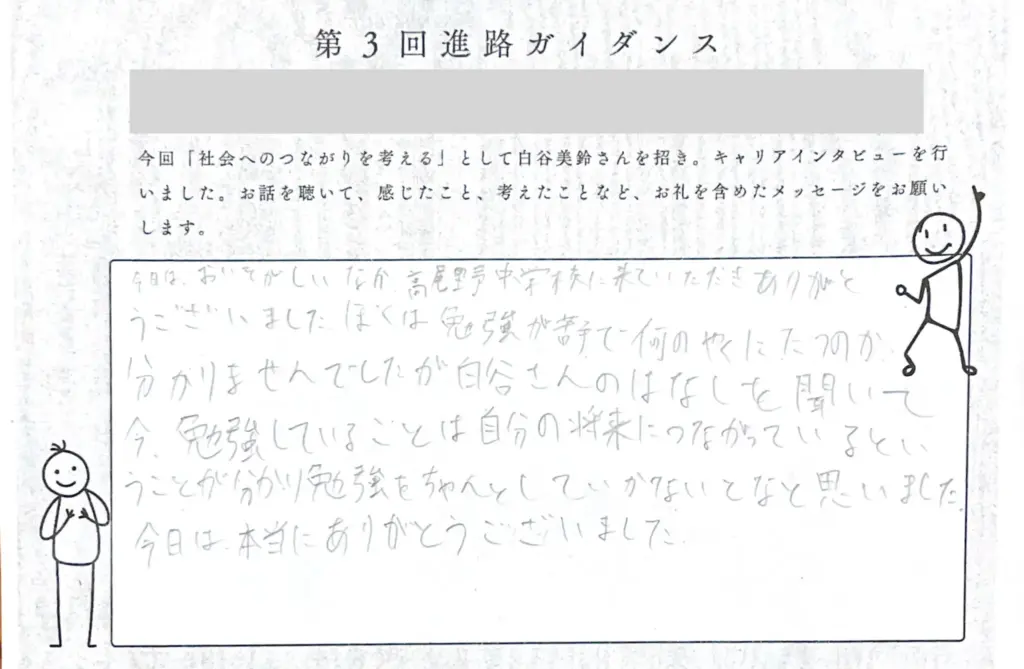 第3回進路ガイダンス
今回「社会へのつながりを考える」として白谷美鈴さんを招き。キャリアインタビューを行
いました。お話を聴いて、感じたこと、考えたことなど、お礼を含めたメッセージをお願い
します。
今日は、おいそがしいなか、高尾野中学校に来ていただきありがと
うございました。ぼくは勉強が苦手で何のやくにたつのか、
分かりませんでしたが白谷さんのはなしを聞いて
今、勉強していることは自分の将来につながっているとい
うことが分かり勉強をちゃんとしていかないとなと思いました。
今日は、本当にありがとうございました。